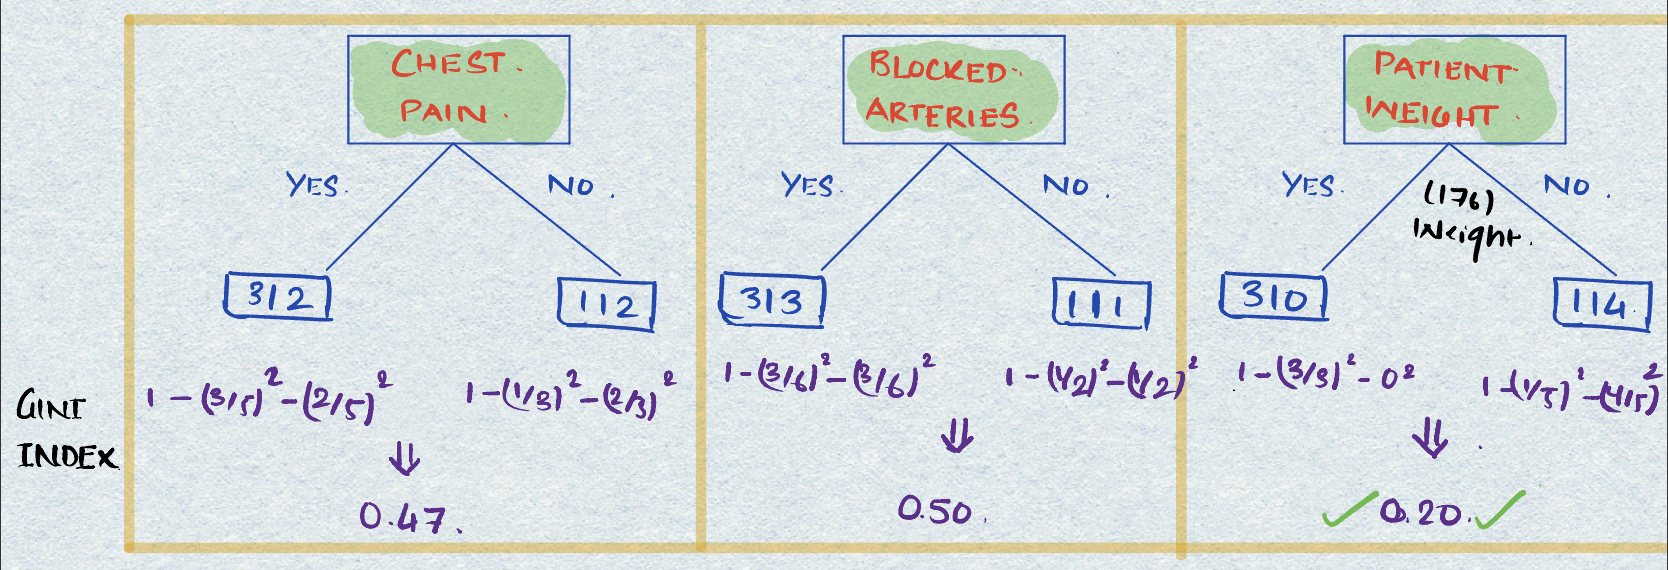 CHEST
PAIN.
YES.
NO.
312
112
1-(3/5)²-(2/5)²
1-(1/3)²-(2/3)²
⇓
0.47.
BLOCKED
ARTERIES.
YES.
NO.
313
111
1-(3/6)²-(3/6)²
1-(1/2)²-(1/2)²
⇓
0.50.
PATIENT
WEIGHT.
YES.
NO.
(176)
Weight.
310
114.
1-(3/3)²-0²
1-(1/5)²-(4/5)²
⇓
✓ 0.20. ✓
GINI
INDEX